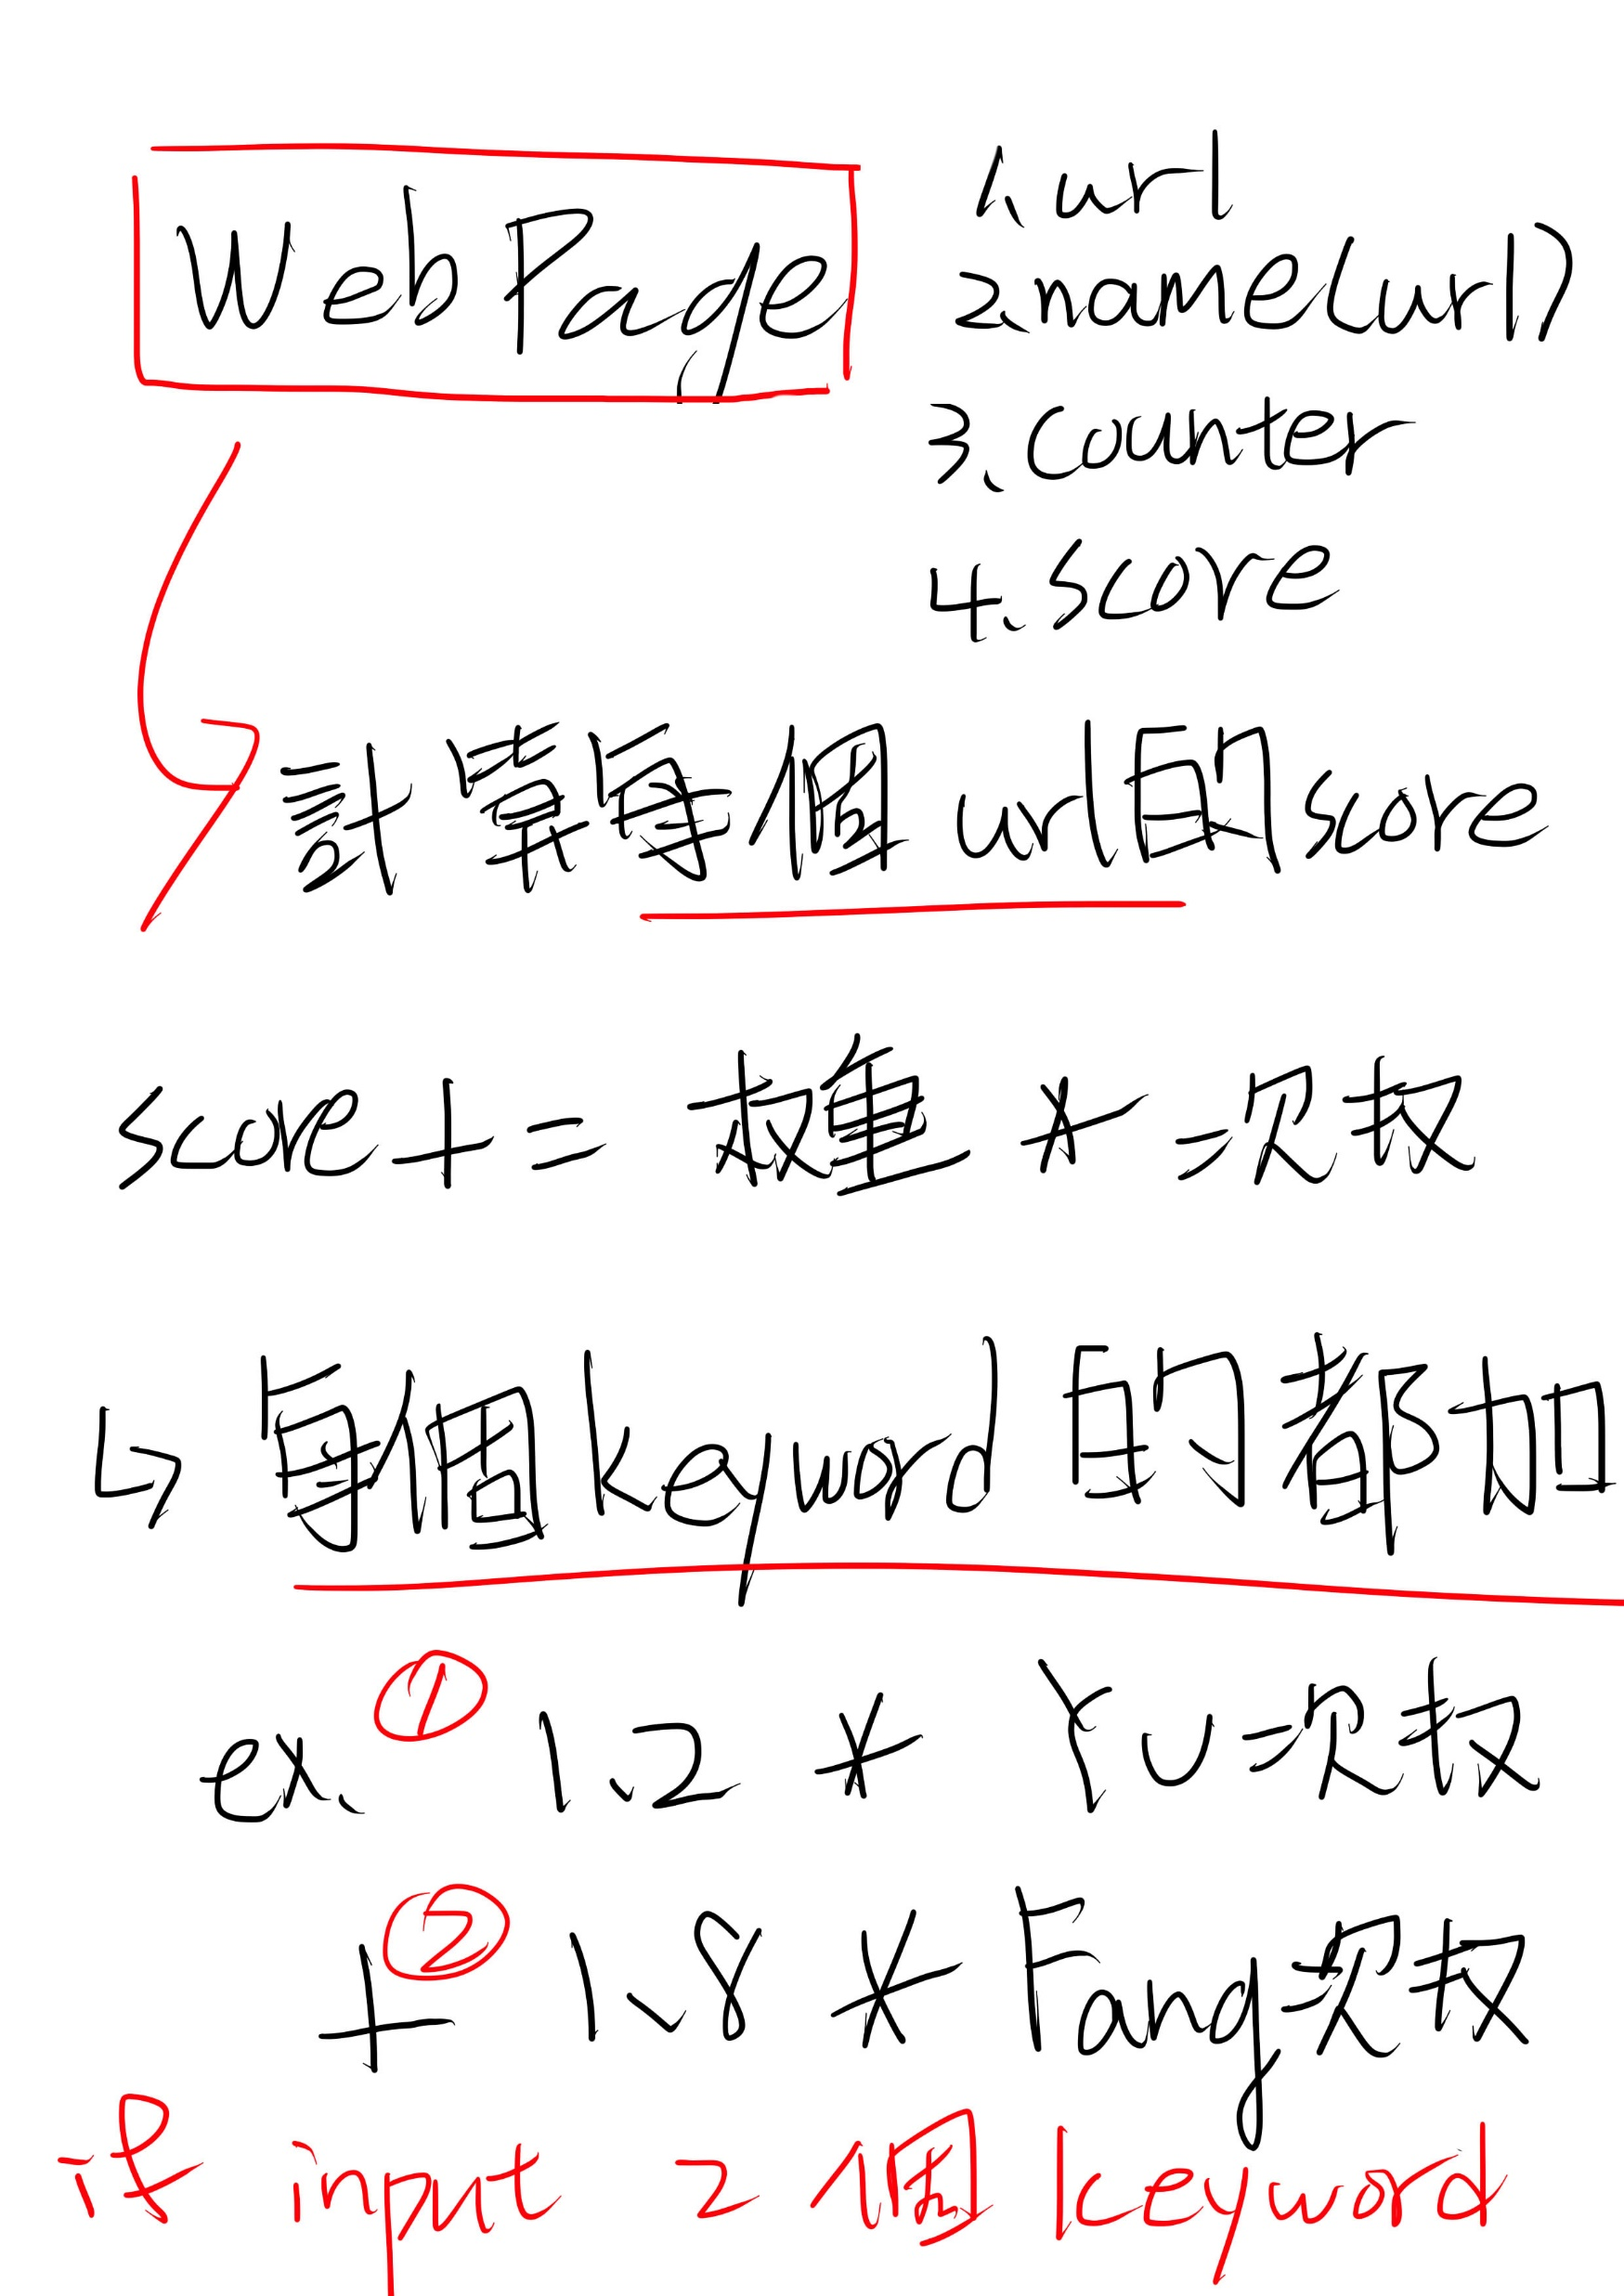 Web Page
1. url
2. name(url)
3. counter
4. score
計算每個url的score
score += 權重 * 次數
=> 每個keyword的都加
ex. ① 1.2 * Yu次數
+ ② 1.8 * Fang次數
input 2個keyword